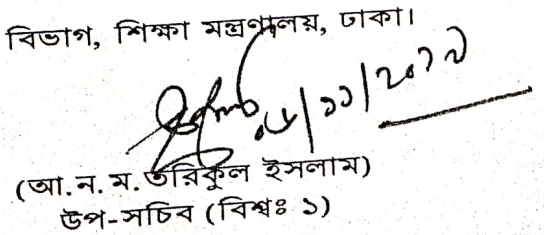 বিভাগ, শিক্ষা মন্ত্রণালয়, ঢাকা।
(আ.ন.ম.তরিকুল ইসলাম)
উপ-সচিব (বিশ্বঃ ১)